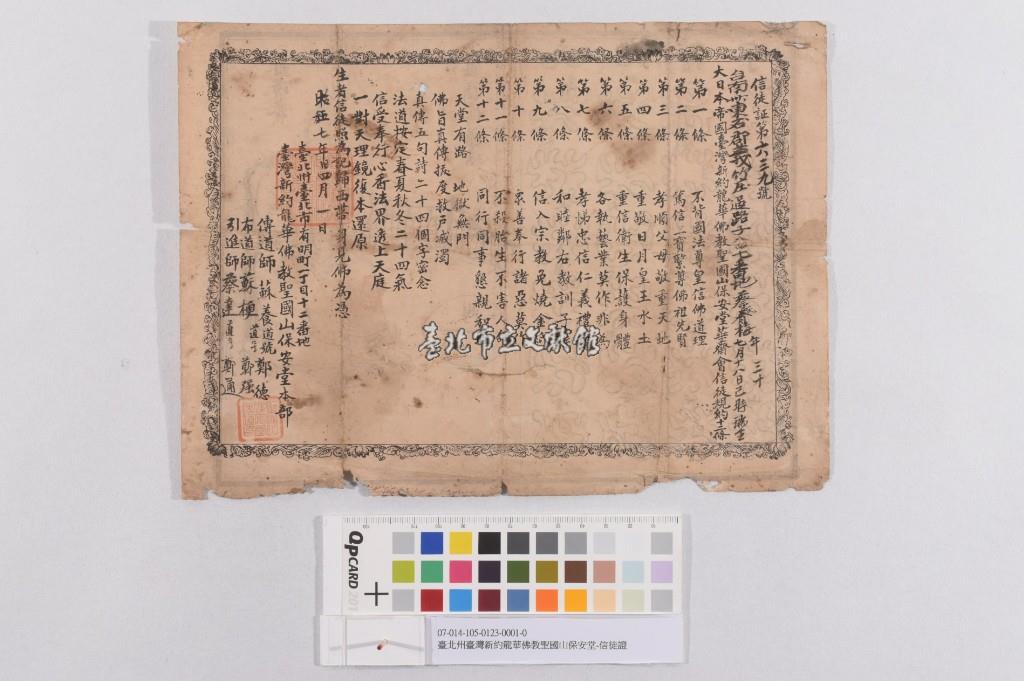 信徒証第六三九號
台南州東石郡義竹庄過路子七番地蔡春梅 年三十 七月十八日己時瑞生
大日本帝國臺灣新約龍華佛教聖國山保安堂華齋會信徒規約十二條
第一條 不背國法尊皇信佛道理
第二條 篤信一質繫尊佛祖先賢
第三條 孝順父母敬重天地
第四條 重敬日月皇王水土
第五條 重信衛生保護身體
第六條 各執藝業莫作非為
第七條 孝悌忠信仁義禮
第八條 和睦鄰右教訓子
第九條 信入宗教免燒金
第十條 衆善奉行諸惡莫
第十一條 不殺胎生不害人
第十二條 同行同事懇親和
天堂有路 地獄無門
佛旨真傳振度救戶滅濁
真傳五句詩二十四個字密念
法道按定春夏秋冬二十四氣
信受奉行心香法界透上天庭
一對天理鏡復本還原
生者信徒照為記歸西帶引見佛為憑
昭和七年四月一日
臺北州臺北市有明町一丁目十二番地
臺灣新約龍華佛教聖國山保安堂本部
傳道師 蘇養道號鄭德
布道師 蘇種 道号 鄭強
引進師 蔡達 道号 鄭通
臺北市立文獻館
QPCARD 201
07-014-105-0123-0001-0
臺北州臺灣新約龍華佛教聖國山保安堂-信徒證